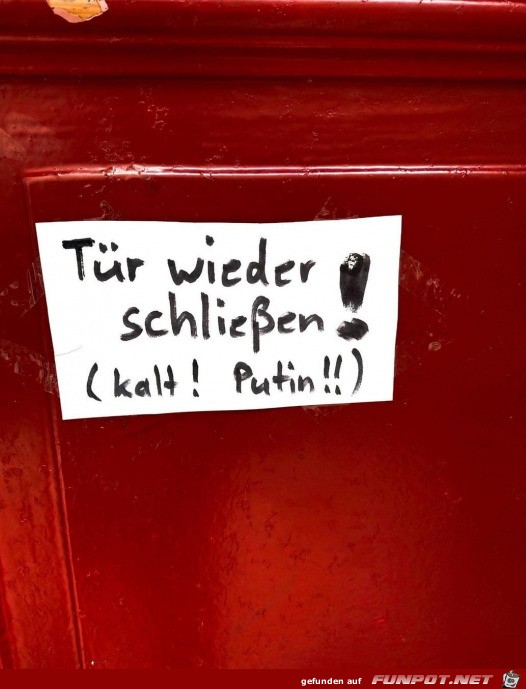 Tür wieder
schließen!
(kalt! Putin!!)
gefunden auf FUNPOT.NET